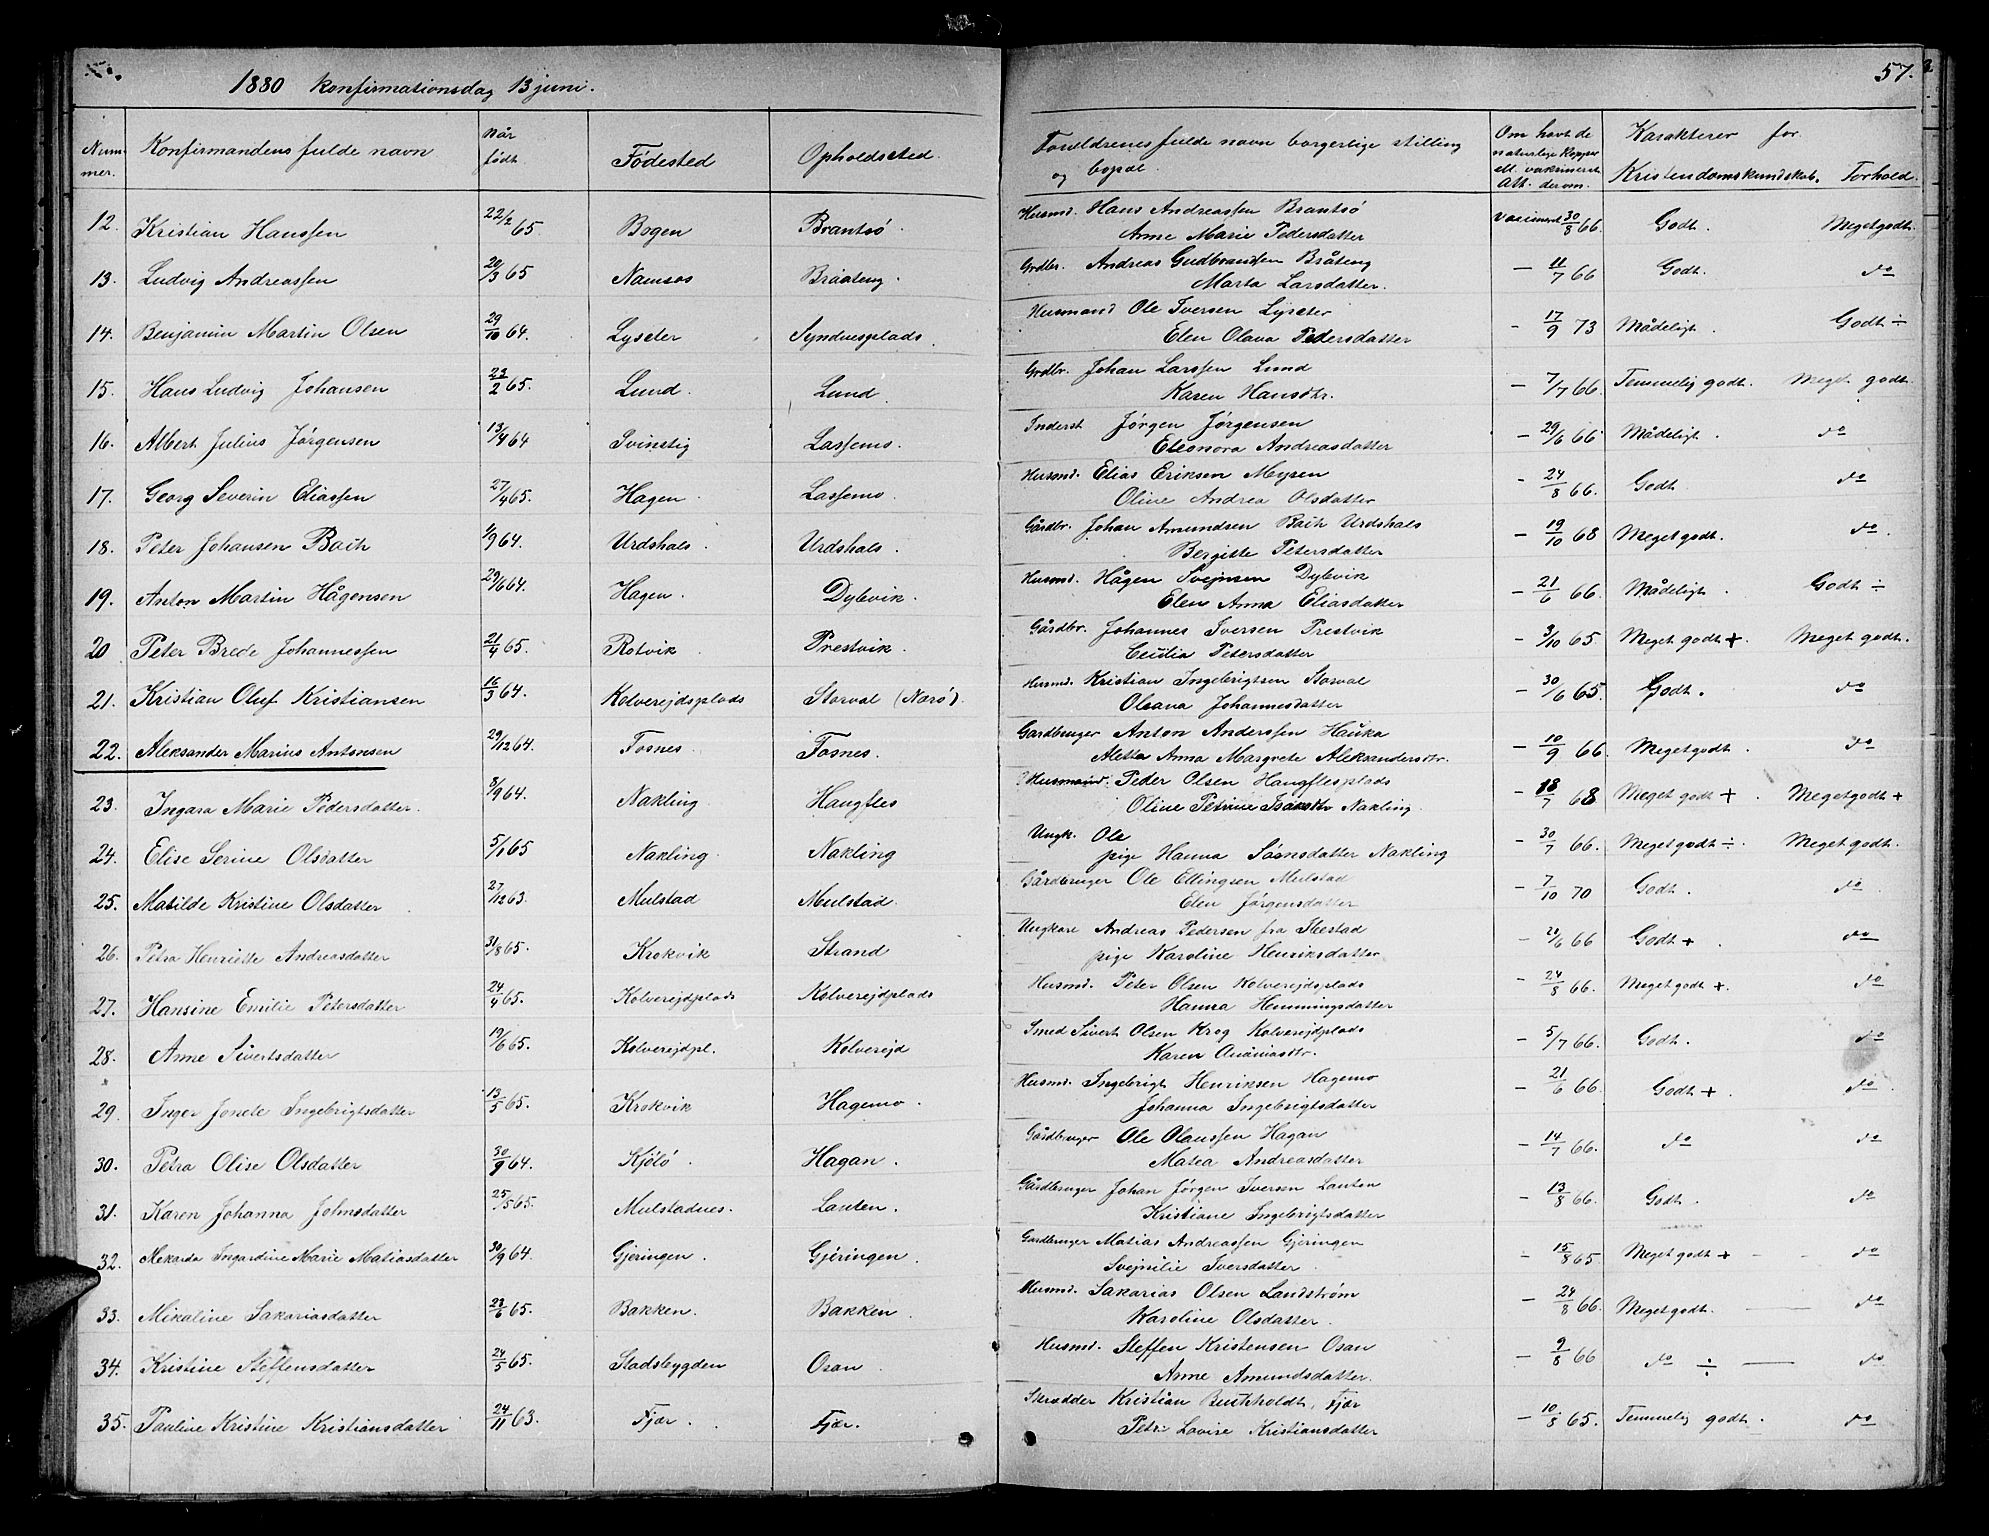 1880 Konfirmationsdag 13 juni.
57.
Nummer. Konfirmandens fulde navn Når født. Fødested Opholdssted. Foreldrenes fulde navn borgerlige stilling og bopæl. Om havt de naturlige Kopper ell. vakcineret Att. derom. Karakterer for Kristendomskundskab. Forhold.
12. Kristian Hanssen 22/2 65. Bogen Brantsö. Husmd. Hans Andreassen Brantsö Vaccineret 30/8 66. Godt. Meget godt.
Anne Marie Pedersdatter
13. Ludvig Andreassen 20/3 65 Namsos Bråateng. Grdbr. Andreas Gudbrandsen Bråteng – 11/7 66 Godt. do
Marta Larsdatter.
14. Benjamin Martin Olsen 29/10 64. Lyseter Syndnesplads. Husmand Ole Iversen Lyseter – 17/9 73 Mådeligt. Godt ÷
Elen Olava Pedersdatter
15. Hans Ludvig Johansen 23/2 65. Lund. Lund. Grdbr. Johan Larssen Lund – 7/7 66. Temmelig godt. Meget godt.
Karen Hansdtr.
16. Albert Julius Jørgensen 13/4 64 Svinstig Lassemo. Inderst Jørgen Jørgensen – 29/6 66 Mådeligt. do
Eleonora Andreasdatter
17. Georg Severin Eliassen 27/4 65. Hagen. Lassemo. Husmd. Elias Eriksen Myren – 24/8 66. Godt. do
Oline Andrea Olsdatter
18. Peter Johansen Bach 1/9 64. Urdshals. Urdshals. Gårdbr. Johan Amundsen Bach Urdshals – 19/10 68 Meget godt. do
Bergitte Petersdatter
19. Anton Martin Hågensen 29/6 64. Hagen. Dylevik. Husmd. Hågen Svejnsen Dylevik – 21/6 66. Mådeligt. Godt ÷
Elen Anna Eliasdatter
20 Peter Brede Johannessen 21/4 65. Rotvik. Prestvik. Gårdbr. Johannes Iversen Prestvik – 3/10 65 Meget godt +. Meget godt.
Cecilia Petersdatter
21. Kristian Oluf Kristiansen 16/3 64. Kolverejdsplads Storval (Narö). Husmd. Kristian Ingebrigtsen Storval – 30/6 65. Godt. do
Oleana Johannesdatter
22. Aleksander Marius Antonsen 29/12 64. Fosnes. Fosnes. Gardbruger Anton Anderssen Hauka – 10/9 66. Meget godt. do
Aletta Anna Margrete Aleksandersdtr.
23. Ingara Marie Pedersdatter. 8/9 64. Nakling Haugfles Husmand. Peder Olsen Haugflesplads – 18/7 68 Meget godt +. Meget godt +
Oline Petrine Isaksdtr Nakling.
24. Elise Serine Olsdatter 5/1 65 Nakling. Nakling Ungk. Ole – 30/7 66. Meget godt ÷. Meget godt.
pige Hanna Sörnsdatter Nakling
25. Matilde Kristine Olsdatter 27/12 63. Mulstad Mulstad. Gårdbruger Ole Ellingsen Mulstad – 7/10 70 Godt. do
Elen Jørgensdatter
26. Petra Henriette Andreasdatter 31/8 65. Krokvik Strand Ungkare Andreas Pedersen fra Steestad – 21/6 66 Godt +. do
pige Karoline Henriksdatter
27. Hansine Emilie Petersdatter 24/4 65. Kolverejdplads Kolverejdplads Husmd. Peter Olsen Kolverejdplads – 24/8 66. Meget godt +. do
Hanna Hemmingsdatter
28. Anne Sivertsdatter 19/6 65. Kolverejdpl. Kolverejd Smed Sivert Olsen Krog Kolverejdplads – 5/7 66. Godt. do
Karen Ananiasdtr.
29. Inger Jonete Ingebrigtsdatter 13/5 65. Krokvik Hagemo. Husmd. Ingebrigt Henriksen Hagemo – 21/6 66. Godt +. do
Johanna Ingebrigtsdatter
30. Petra Olise Olsdatter 30/9 64. Kjölö. Hagan. Gårdbruger Ole Olaussen Hagan – 14/7 66. do do
Matea Andreasdatter
31. Karen Johanna Johnsdatter 25/5 65. Mulstadnes. Lauten. Gårdbruger Johan Jørgen Iversen Lauten – 13/8 66. Godt. do
Kristiane Ingebrigtsdatter
32. Mekarda Ingardine Marie Matiasdatter 30/9 64. Gjeringen. Gjeringen. Gardbruger Matias Andreassen Gjeringen – 15/8 65. Meget godt + – – do
Svejnilie Iversdatter
33. Mikaline Sakariasdatter 23/6 65. Bakken. Bakken. Husmd. Sakarias Olsen Landstrøm – 24/8 66. Meget godt. — do
Karoline Olsdatter.
34. Kristine Steffensdatter 24/5 65. Stadsbygden Osan Husmd. Steffen Kristensen Osan – 9/8 66 do ÷ — do
Anne Amundsdatter.
35. Pauline Kristine Kristiansdatter 24/11 63. Fjær. Fjær. Skrædder Kristian Buchholdt, Fjær – 10/8 65. Temmelig godt. do
Petri Lovise Kristiansdatter